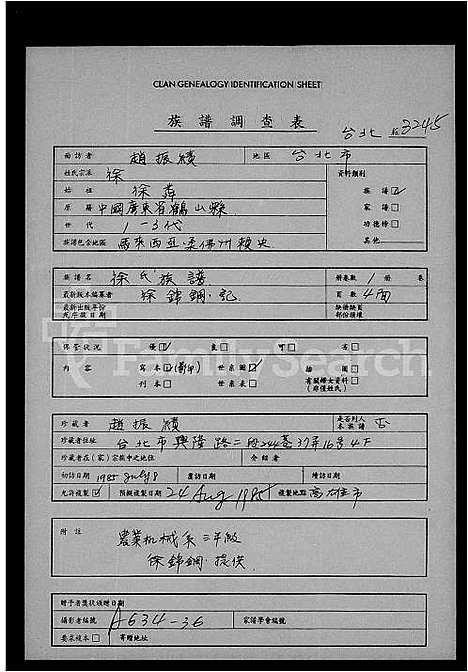 CLAN GENEALOGY IDENTIFICATION SHEET
族譜調查表
台北 3245
面訪者 趙振績 地區 台北市
姓氏宗派 徐 資料類別
始祖 徐 族譜 ☑
原籍 中國廣東省鶴山縣 家譜 □
世代 1-3代 功德榜 □
族譜包含地區 馬來西亞柔佛州 其他
族譜名 徐氏族譜 冊卷數 1 冊 卷
最新版本編纂者 徐錦鋼·記 頁數 4面
最新出版年份或年版日期 缺冊缺頁部份損壞
保管狀況 優 ☑ 良 □ 可 □ 劣 □
內容 寫本 ☑ (影印) 世系圖 ☑ 插圖 □
刊本 □ 世系表 □ 有關婦女資料 (非僅姓氏) □
FamilySearch
珍藏者 趙振績 是否列入本族譜 否
珍藏者住址 台北市興隆路二段244巷37弄16号4F
珍藏者在(家)宗族中之地位 介紹者
初訪日期 1985 July 8 重訪日期 續訪日期
允許複製 ☑ 預擬複製日期 24 Aug 1985 複製地點 高雄市
附註 農業机械系三年級
徐錦鋼·提供
贈予者獎狀頒贈日期
攝影者編號 A634-36 家譜學會編號
要菜複本 □ 寄贈地址